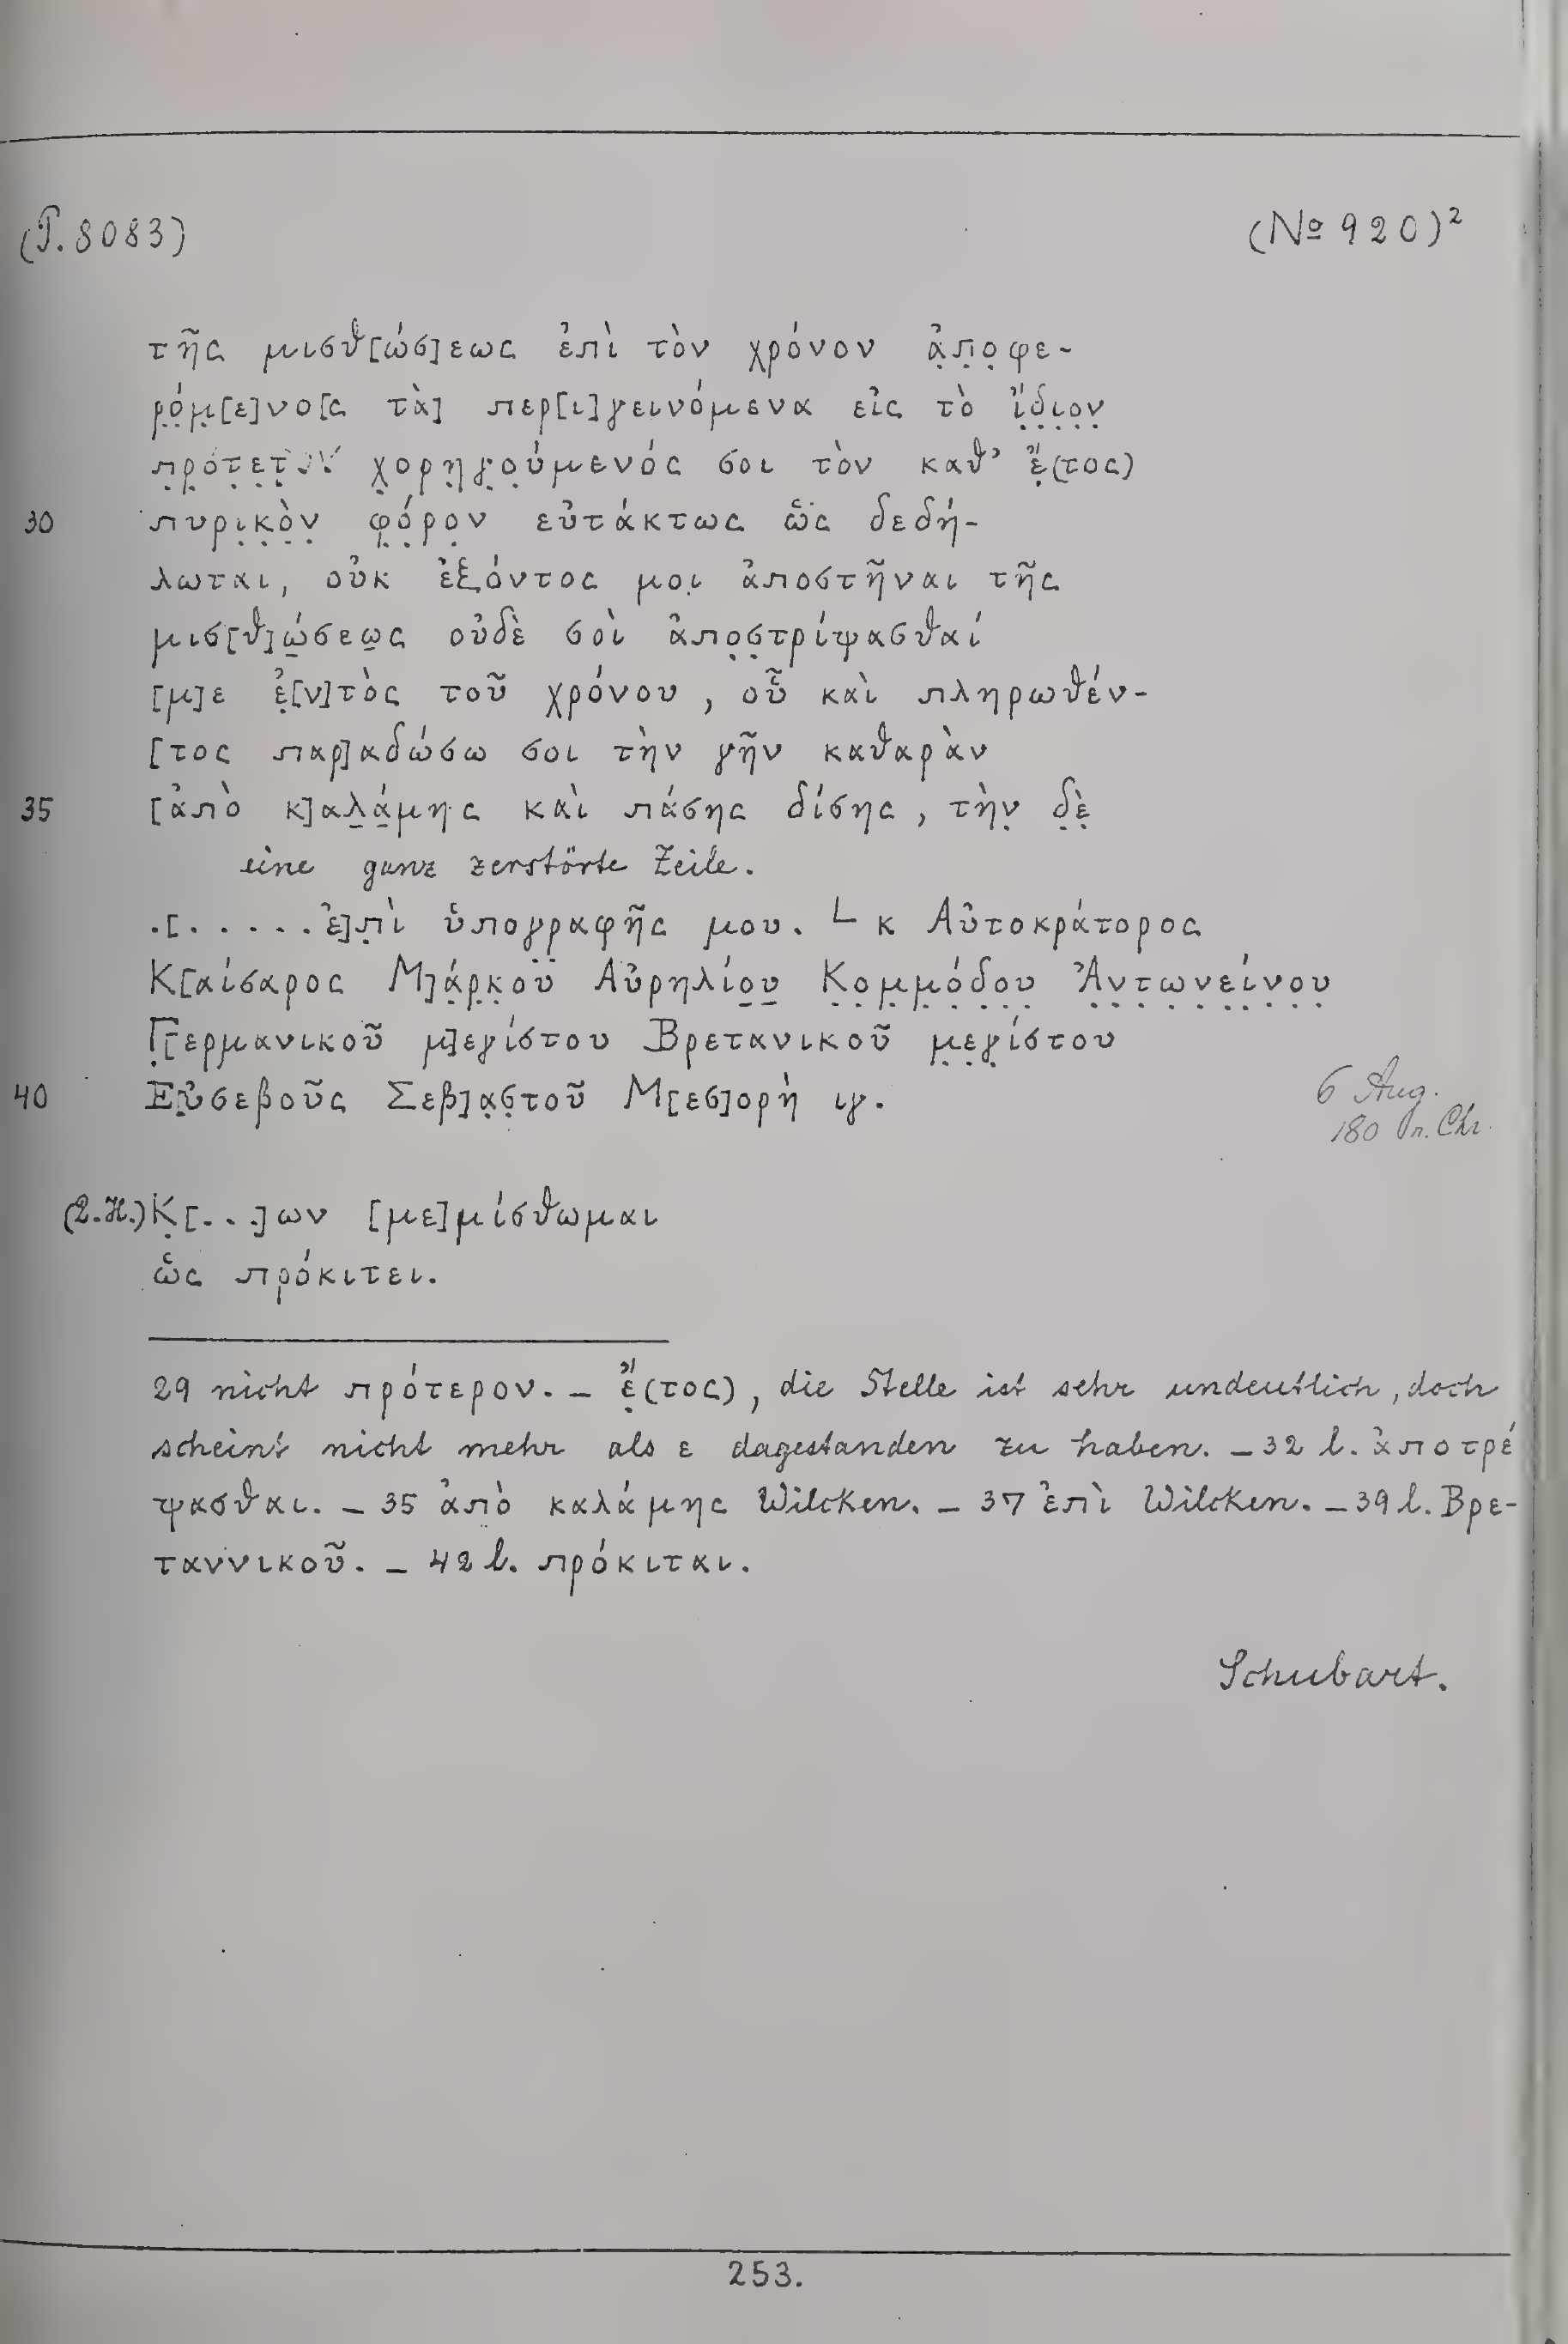 (P. 8083)
(№ 920)²
τῆς μισθ[ώσ]εως ἐπὶ τὸν χρόνον ἀ̣π̣ο̣φε-
ρ̣ό̣μ̣[ε]νο[ς τὰ] περ[ι]γεινόμενα εἰς τὸ ἴ̣δ̣ι̣ο̣ν̣
π̣ρ̣ό̣τ̣ε̣τ̣ χ̣ορη̣γ̣ο̣ύμενός σοι τὸν καθ’ ἔ̣(τος)
30 πυρι̣κ̣ὸ̣ν̣ φ̣ό̣ρο̣ν εὐτάκτως ὡς δεδή-
λωται, οὐκ ἐξόντος μοι̣ ἀποστῆναι τῆς
μισ[θ]ώ̣σεω̣ς οὐδὲ σοὶ ἀπο̣σ̣τρίψασθαί
[μ]ε ἐ̣[ν]τὸς τοῦ χρόνου, οὗ καὶ πληρωθέν-
[τος παρ]αδώσω σοι τὴν γῆν καθαρὰν
35 [ἀπὸ κ]αλ̣ά̣μης καὶ πάσης δίσης, τὴν̣ δ̣ὲ̣
eine ganz zerstörte Zeile.
.[......ἐ]π̣ὶ ὑπογραφῆς μου. └ κ Αὐτοκράτορος
Κ[αίσαρος Μ]ά̣ρ̣κ̣οϋ Αὐρηλίο̣υ̣ Κ̣ο̣μ̣μ̣ό̣δ̣ο̣υ̣ Ἀ̣ν̣τ̣ω̣ν̣ε̣ί̣ν̣ο̣υ̣
Γ̣[ερμανικοῦ μ]εγίστου Βρετανικοῦ μ̣ε̣γ̣ίστου
40 Εὐ̣σεβοῦς Σεβ]α̣σ̣τοῦ Μ[εσ]ορὴ̣ ιγ.
6 Aug.
180 n. Chr.
(2. H.) Κ̣[...]ων [με]μίσθωμαι
ὡς πρόκιτει.
29 nicht πρότερον. – ἔ̣(τος), die Stelle ist sehr undeutlich, doch
scheint nicht mehr als ε dagestanden zu haben. – 32 l. ἀποτρέ
ψασθαι. – 35 ἀπὸ καλάμης Wilcken. – 37 ἐπὶ Wilcken. – 39 l. Βρε-
ταννικοῦ. – 42 l. πρόκιται.
Schubart.
253.